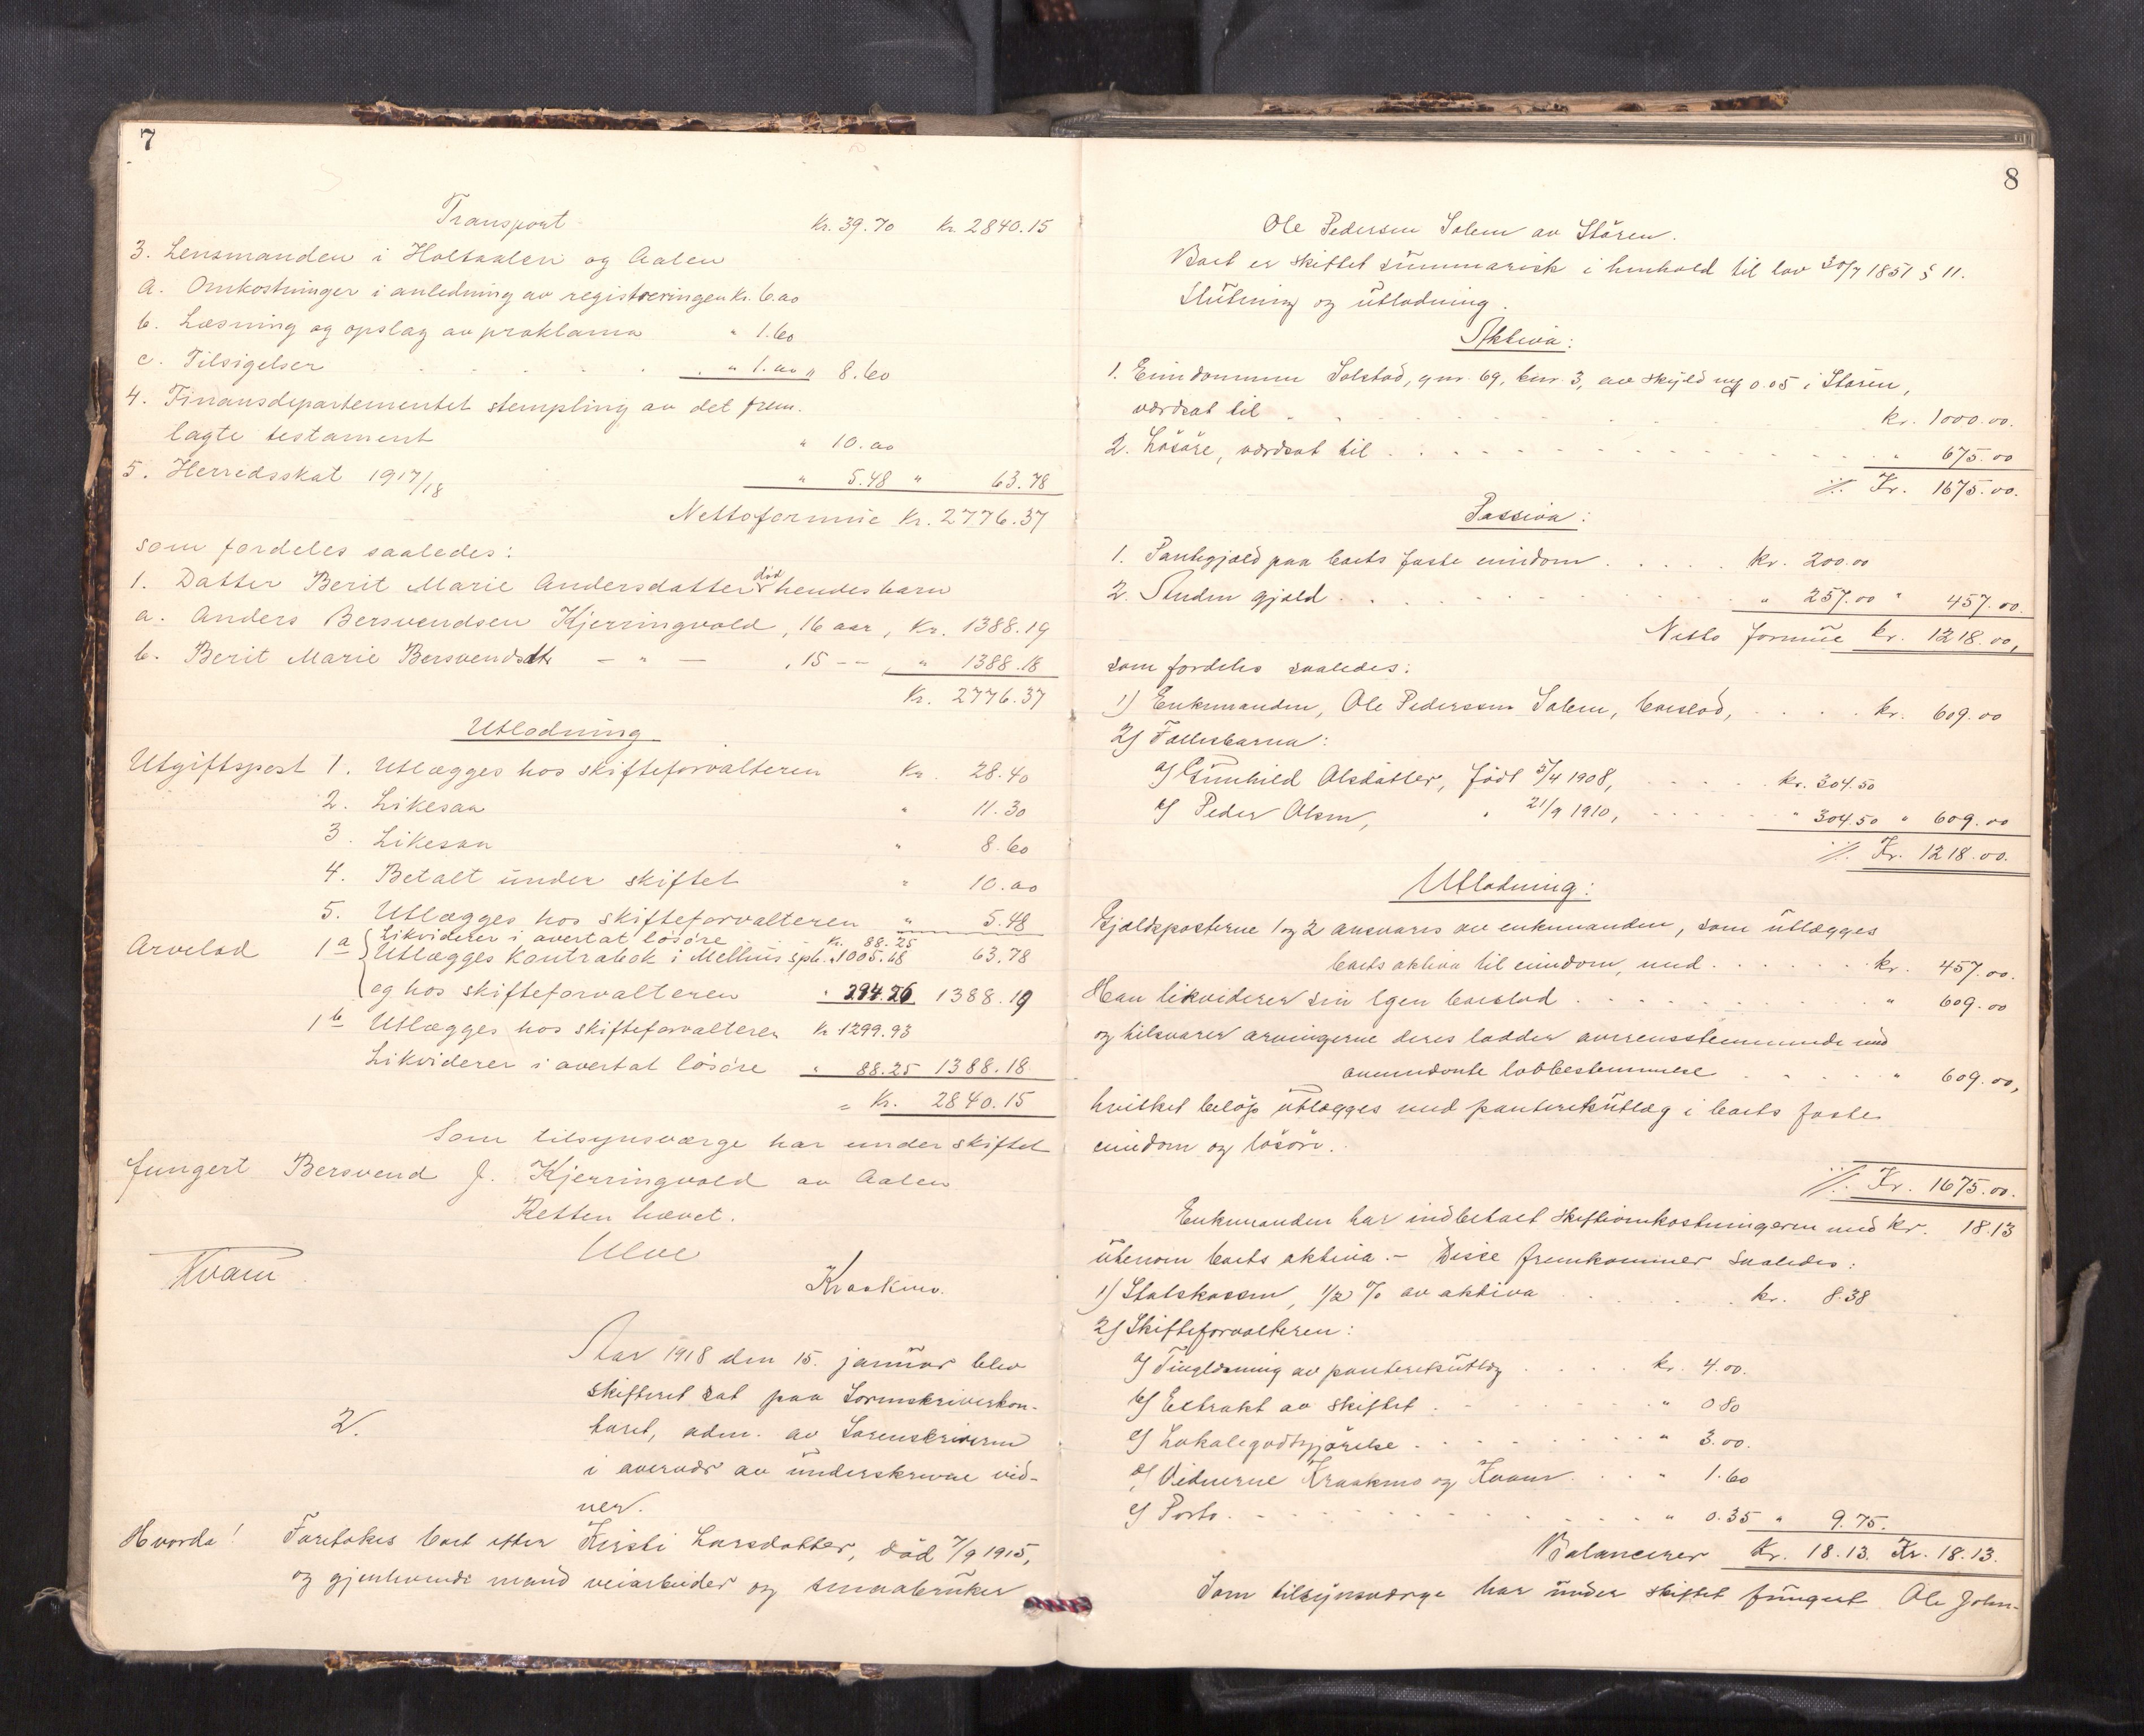 7
Transport Kr. 39.70 Kr. 2840.15
3. Lensmanden i Holtaalen og Aalen
a. Omkostninger i anledning av registreringen Kr. 6.00
b. Læsning og opslag av proklama " 1.60
c. Tilsigelser . . . . . " 1.00 " 8.60
4. Finansdepartementet stempling av det frem-
lagte testament " 10.00
5. Herredsskat 1917/18 " 5.48 " 63.78
Nettoformue Kr. 2776.37
som fordeles saaledes:
1. Datter Berit Marie Andersdatter død hendes barn
a. Anders Bersvendsen Kjerringvold, 16 aar, Kr. 1388.19
b. Berit Marie Bersvendsdtr — " — , 15 — — , " 1388.18
Kr. 2776.37
Utlodning
Utgiftspost 1. Utlægges hos skifteforvalteren Kr. 28.40
2. Likesaa " 11.30
3. Likesaa " 8.60
4. Betalt under skiftet " 10.00
5. Utlægges hos skifteforvalteren " 5.48
Arvelod 1a Likviderer i overtat løsøre Kr. 88.25
Utlægges Kontrabok i Melhus spb. " 1005.68 63.78
og hos skifteforvalteren " 294.26 1388.19
1b Utlægges hos skifteforvalteren Kr. 1299.93
Likviderer i overtat løsøre " 88.25 1388.18
= Kr. 2840.15
Som tilsynsværge har under skiftet
fungert Bersvend J. Kjerringvold av Aalen
Retten hævet.
Ulve
Kvam Kraakmo.
Aar 1918 den 15. januar blev
skifteret sat paa Sorenskriverkon-
toret, adm. av Sorenskriveren
i overvær av underskrevne vid-
ner.
2.
Hvorda! Foretokes boet efter Kirsti Larsdatter, død 7/9 1915,
og gjenlevende mand veiarbeider og smaabruker
8
Ole Pedersen Solem av Støren.
Boet er skiftet summarisk i henhold til lov 30/7 1851 § 11.
Slutning og utlodning.
Aktiva:
1. Eiendommen Solstad, gnr. 69, bnr. 3, av skyld mrk 0.05 i Støren,
værdsat til . . . . . Kr. 1000.00.
2. Løsøre, værdsat til . . . . . " 675.00
//. Kr. 1675.00.
Passiva:
1. Pantegjæld paa boets faste eiendom . . . . kr. 200.00
2. Anden gjæld . . . . . " 257.00 " 457.00.
Netto formue kr. 1218.00,
som fordeles saaledes:
1) Enkemanden, Ole Pedersen Solem, boeslod, . . . . kr. 609.00
2) Fællesbarna:
a) Gunhild Olsdatter, født 5/4 1908, . . . . kr. 304.50
b) Peder Olsen, " 21/9 1910, . . . . " 304.50 " 609.00
//. Kr. 1218.00.
Utlodning:
Gjældsposterne 1 og 2 ansvares av enkemanden, som utlægges
boets aktiva til eiendom, med . . . . . kr. 457.00.
Han likviderer sin egen boeslod . . . . . " 609.00
og tilsvarer arvingerne deres lodder overensstemmende med
anmeldte lodbestemmelse . . . . " 609.00,
hvilket beløp utlægges med panteretsutlæg i boets faste
eiendom og løsøre.
//. Kr. 1675.00.
Enkemanden har indbetalt skifteomkostningerne med kr. 18.13
utenom boets aktiva. — Disse fremkommer saaledes:
1) Statskassen, 1/2 % av aktiva . . . . kr. 8.38
2) Skifteforvalteren:
a) Tinglæsning av panteretsutlæg . . . . kr. 4.00.
b) Extrakt av skiftet . . . . . " 0.80
c) Lokalegodtgjørelse . . . . . " 3.00.
d) Vidnerne Kraakmo og Kvam . . . " 1.60
e) Porto . . . . . " 0.35 " 9.75.
Balancerer Kr. 18.13. Kr. 18.13.
Som tilsynsværge har under skiftet fungert Ole John-